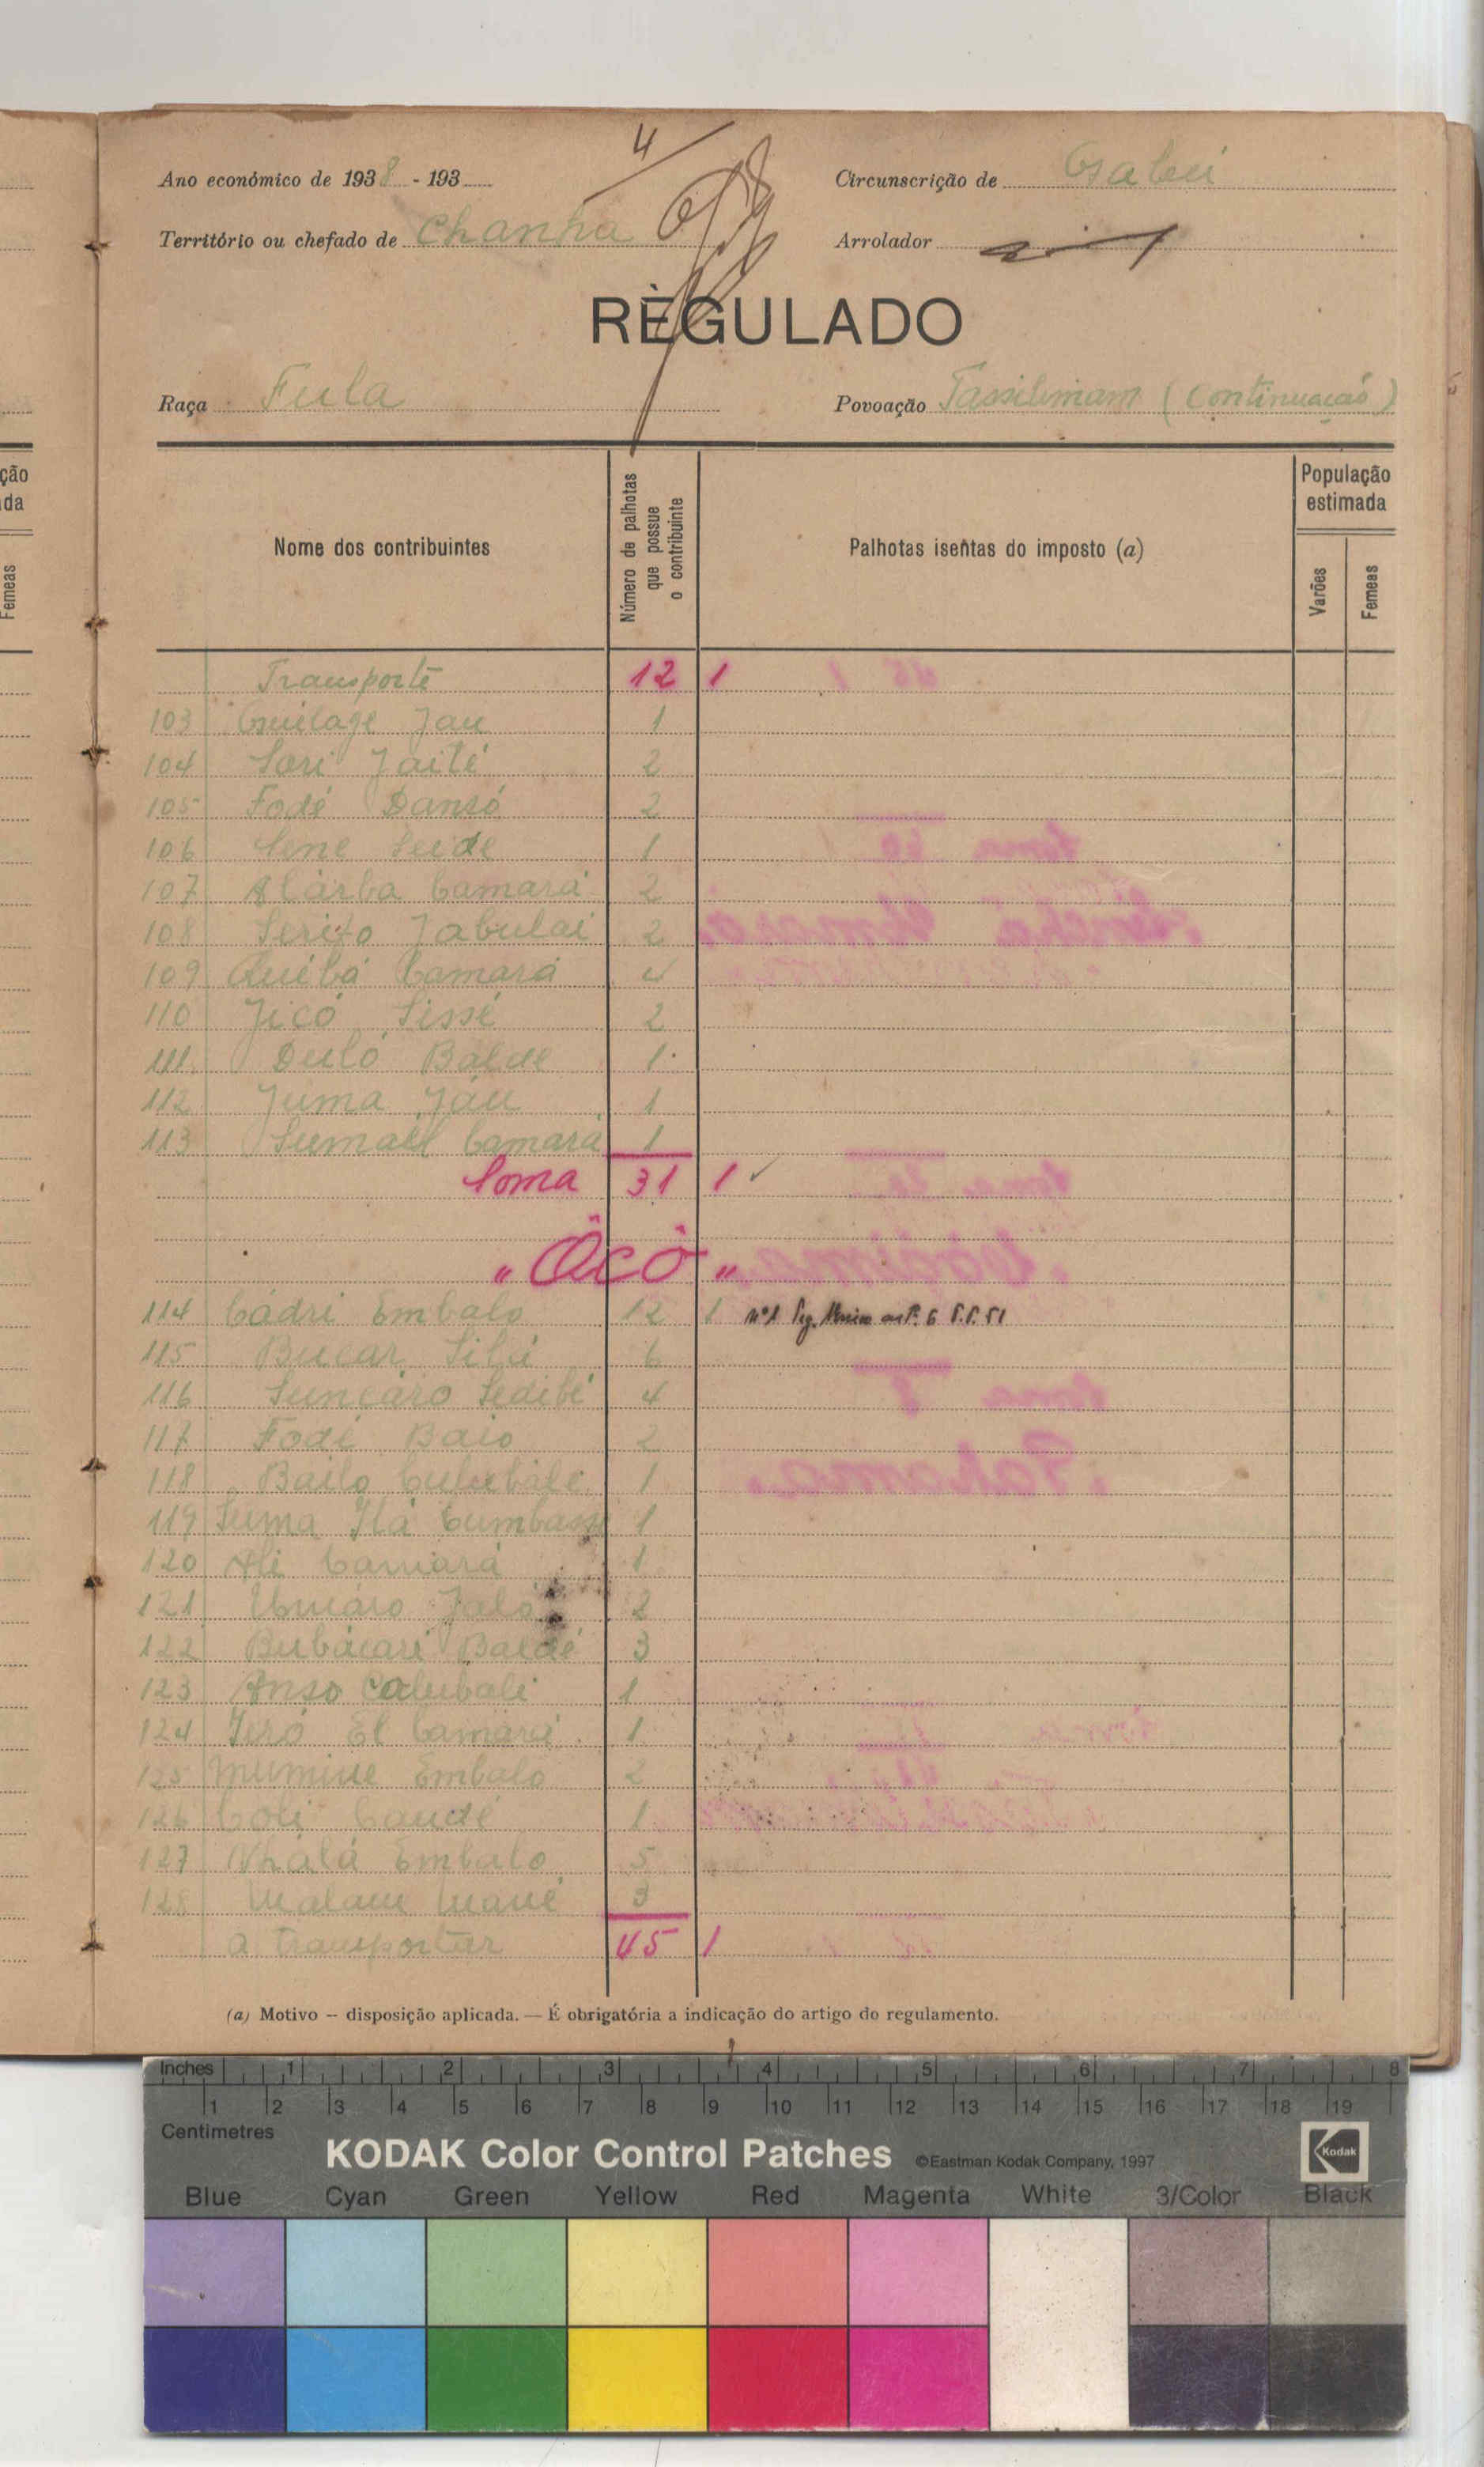 4
Ano económico de 1938 - 193
Circunscrição de Gabú
Território ou chefado de Chanha
Arrolador
RÈGULADO
Raça Fula
Povoação Tassilimam (Continuação)
Nome dos contribuintes
Número de palhotas que possue o contribuinte
Palhotas isentas do imposto (a)
População estimada
Varões
Femeas
Transporte 12 1
103 Guilage Jau 1
104 Sori Jaité 2
105 Fodé Dansó 2
106 Sene Seide 1
107 Alárba Camará 2
108 Serifo Jabulai 2
109 Québá Camará 4
110 Jicó Sissé 2
111 Duló Balde 1
112 Juma Jáu 1
113 Sumael Camará 1
Soma 31 1 ✓
"Ôcô"
114 Cádri Embalo 12 1 nº1
115 Bucar Silá 6
116 Suncáro Sedibé 4
117 Fodé Baio 2
118 Bailo Culubáli 1
119 Suma Ilá 1
120 Ali Camará 1
121 Umáro Jaló 2
122 Bubácari Baldé 3
123 Anso Calubali 1
124 Jeró El Camará 1
125 Mumine Embalo 2
126 Coli Candé 1
127 Nhálá Embalo 5
128 Malam Mané 3
a transportar 45 1
(a) Motivo – disposição aplicada. — É obrigatória a indicação do artigo do regulamento.
ção
da
Femeas
Inches 1 2 3 4 5 6 7 8
1 2 3 4 5 6 7 8 9 10 11 12 13 14 15 16 17 18 19
Centimetres
KODAK Color Control Patches ©Eastman Kodak Company, 1997 Kodak
Blue Cyan Green Yellow Red Magenta White 3/Color Black